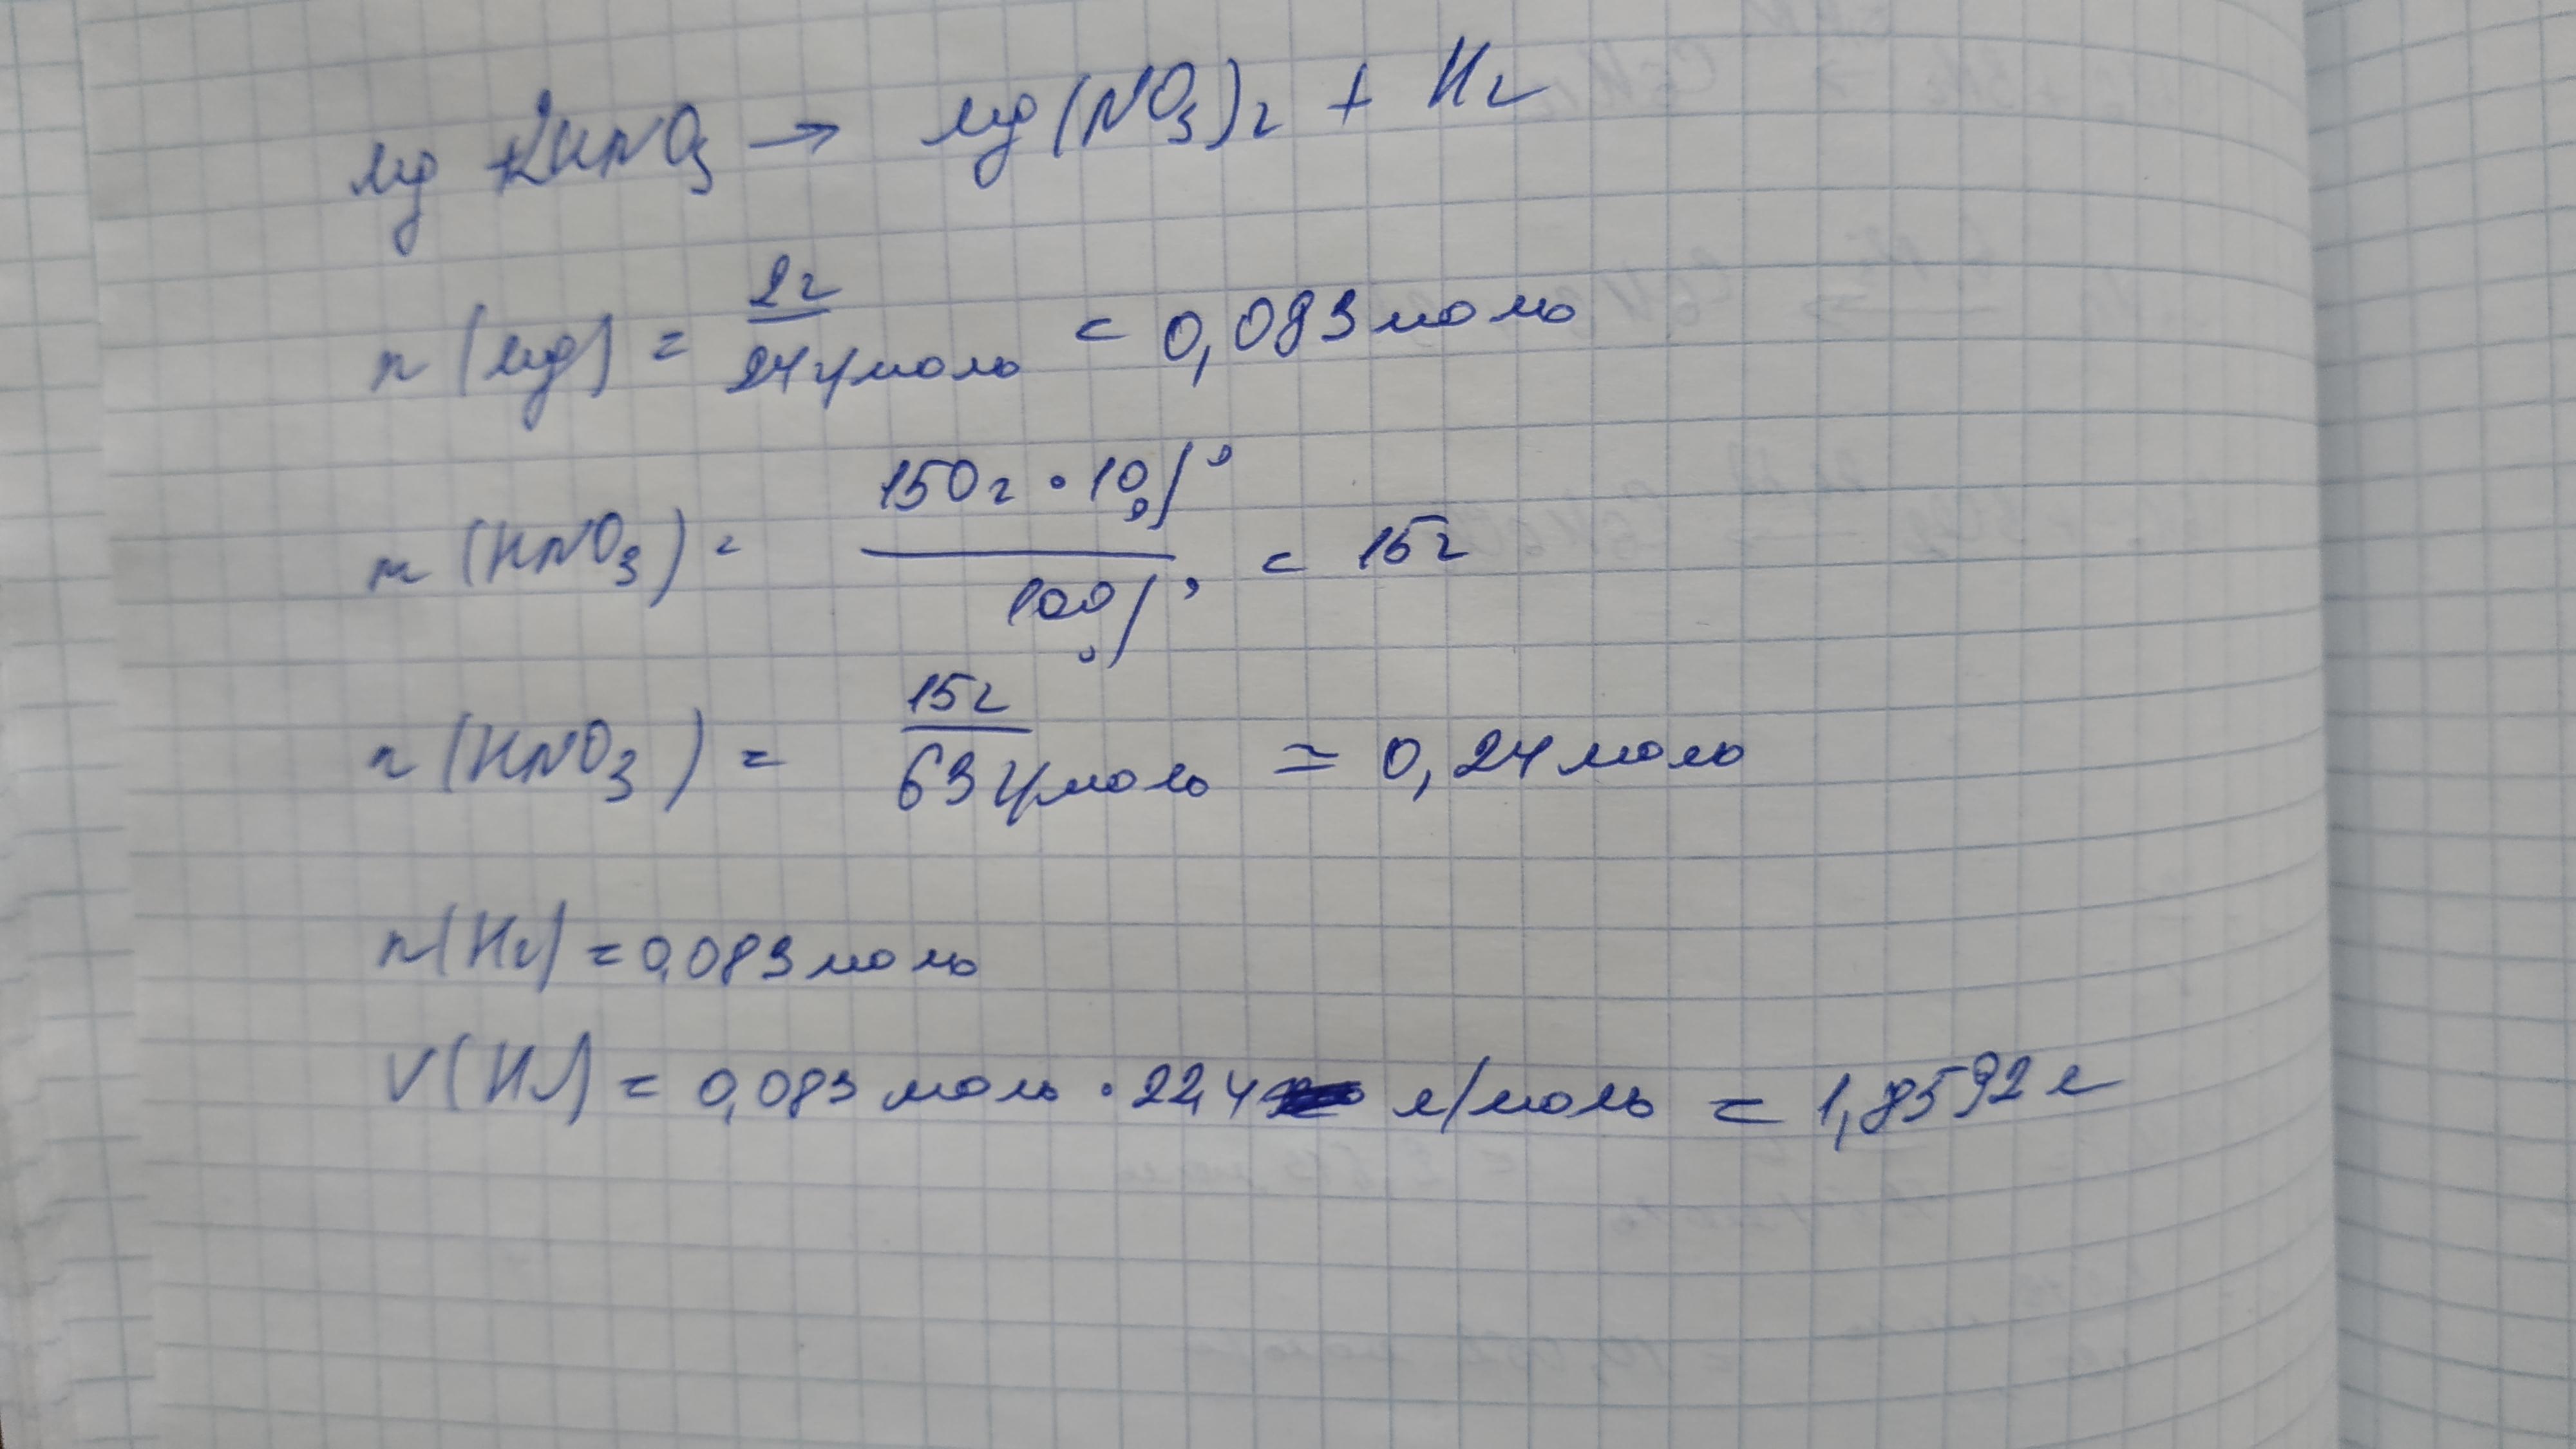 Mg + 2HNO3 → Mg(NO3)2 + H2
n(Mg) = 2г / 24 г/моль = 0,083 моль
m(HNO3) = 150г · 10% / 100% = 15г
n(HNO3) = 15г / 63 г/моль = 0,24 моль
n(H2) = 0,083 моль
V(H2) = 0,083 моль · 22,4 л/моль = 1,8592 л